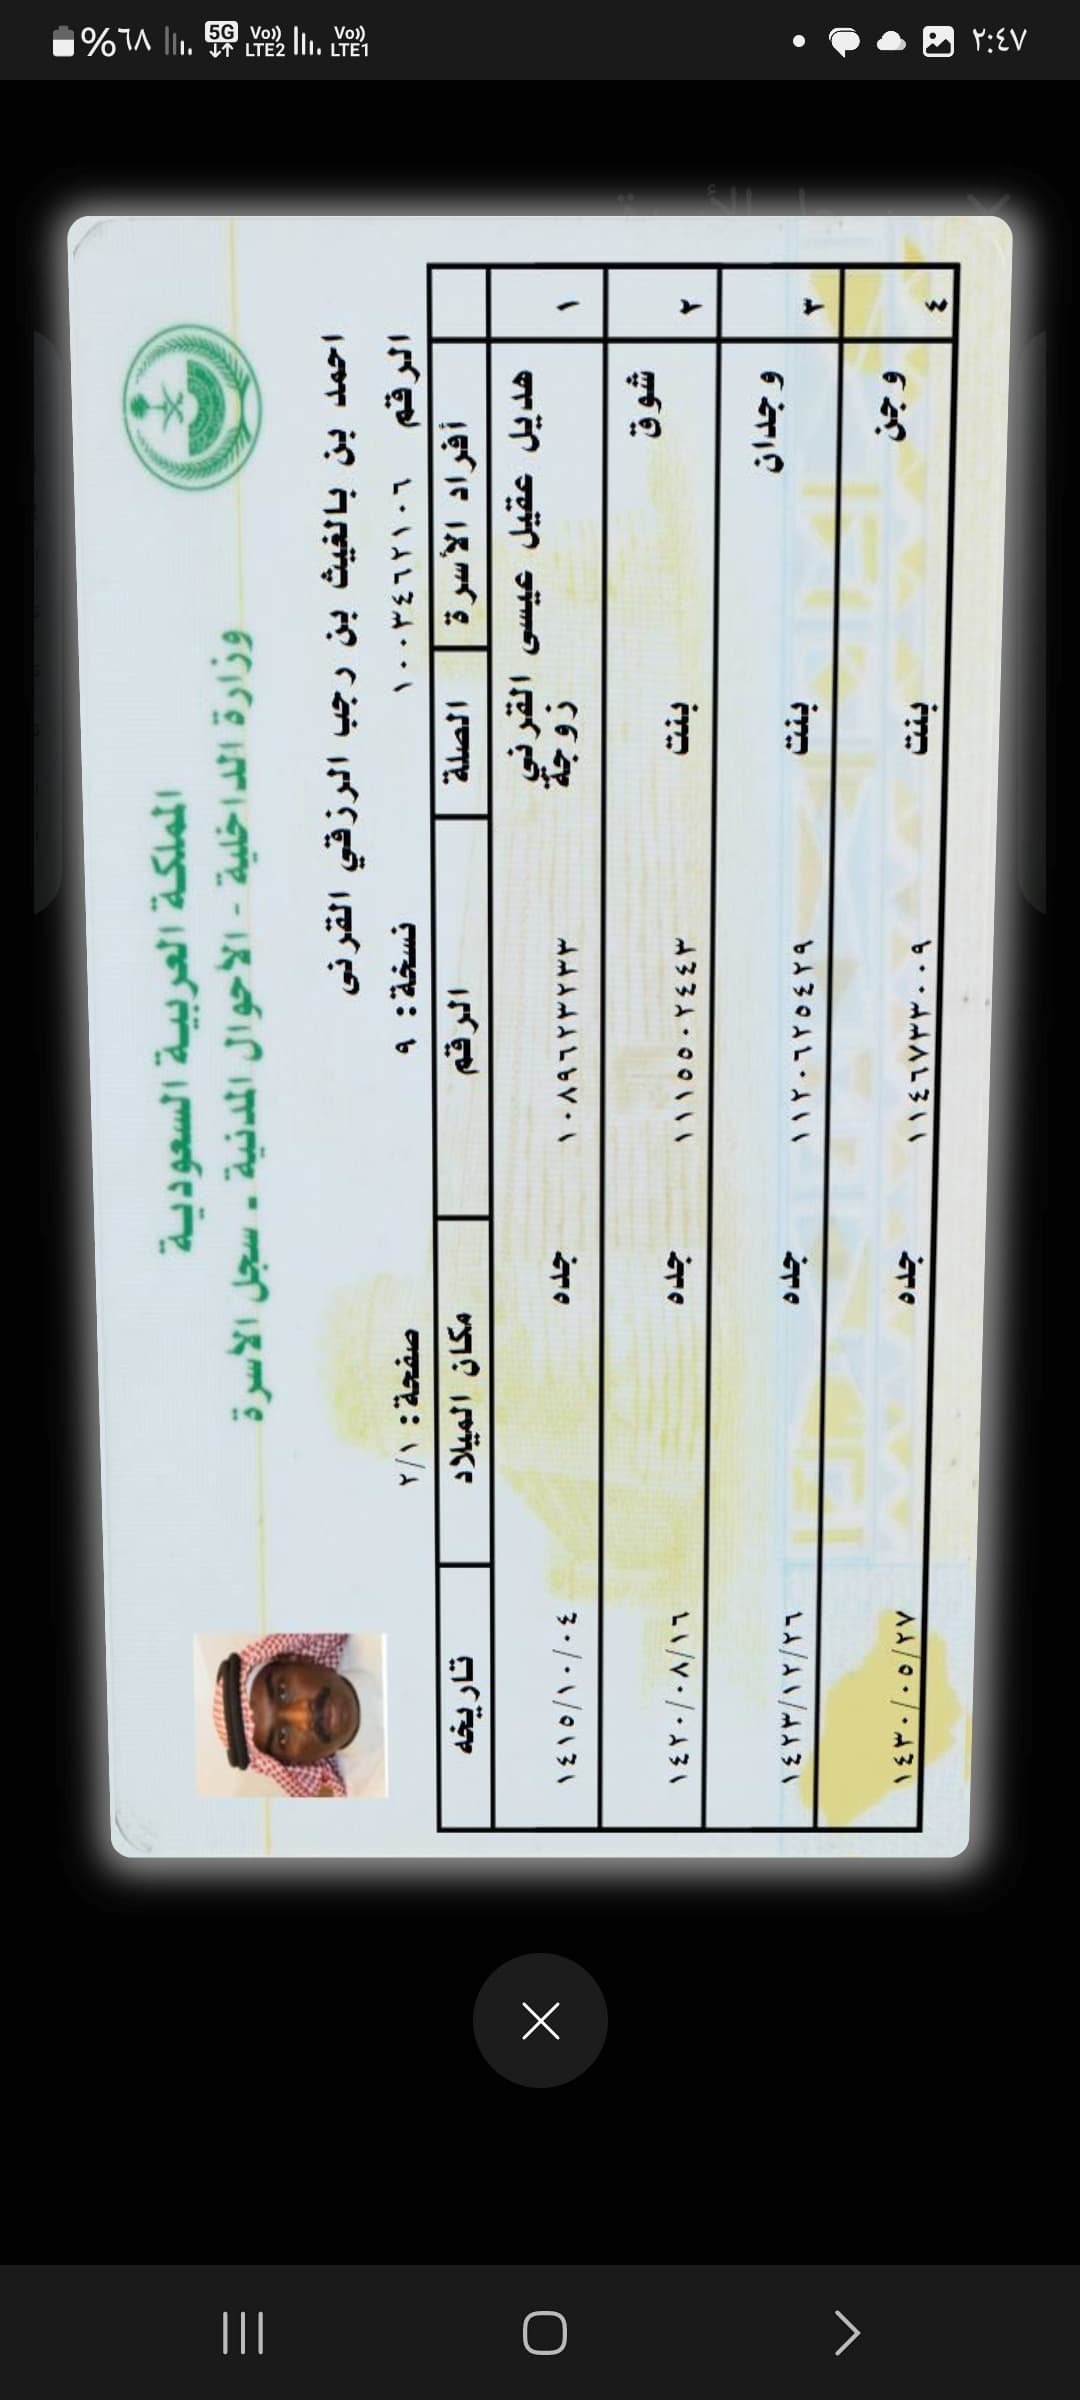 ٢:٤٧
%٦٨ 5G Vo)) LTE2 Vo)) LTE1
المملكة العربية السعودية
وزارة الداخلية - الاحوال المدنية - سجل الاسرة
احمد بن بالغيث بن رجب الرزقي القرنى
الرقم ١٠٠٣٤٦٢١٠٦ نسخة: ٩ صفحة: ٢/١
أفراد الأسرة الصلة الرقم مكان الميلاد تاريخه
١ هديل عقيل عيسى القرني زوجة ١٠٨٩٦٢٣٢٣٣ جده ١٤١٥/١٠/٠٤
٢ شوق بنت ١١١٥٥٠٢٤٤٣ جده ١٤٢٠/٠٨/١٦
٣ وجدان بنت ١١٢٠٦٢٥٤٢٩ جده ١٤٢٣/١٢/٢٦
٤ وجن بنت ١١٤٦٧٣٣٠٠٩ جده ١٤٣٠/٠٥/٢٧